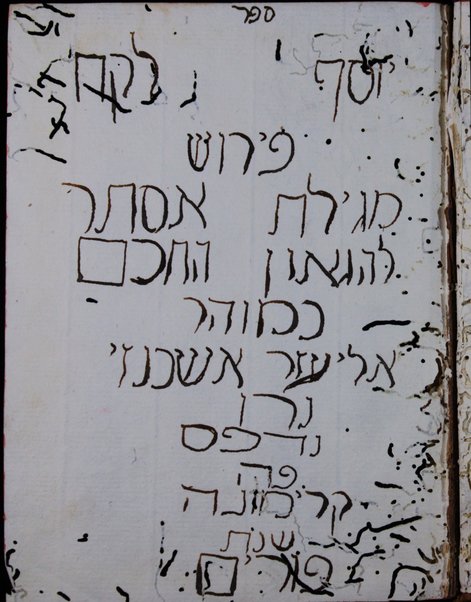 ספר
יוסף לקח
פירוש
מגילת אסתר
להגאון החכם
כמוהר
אליעזר אשכנזי
נרו
נדפס
פה
קרימונה
שנת
פורים